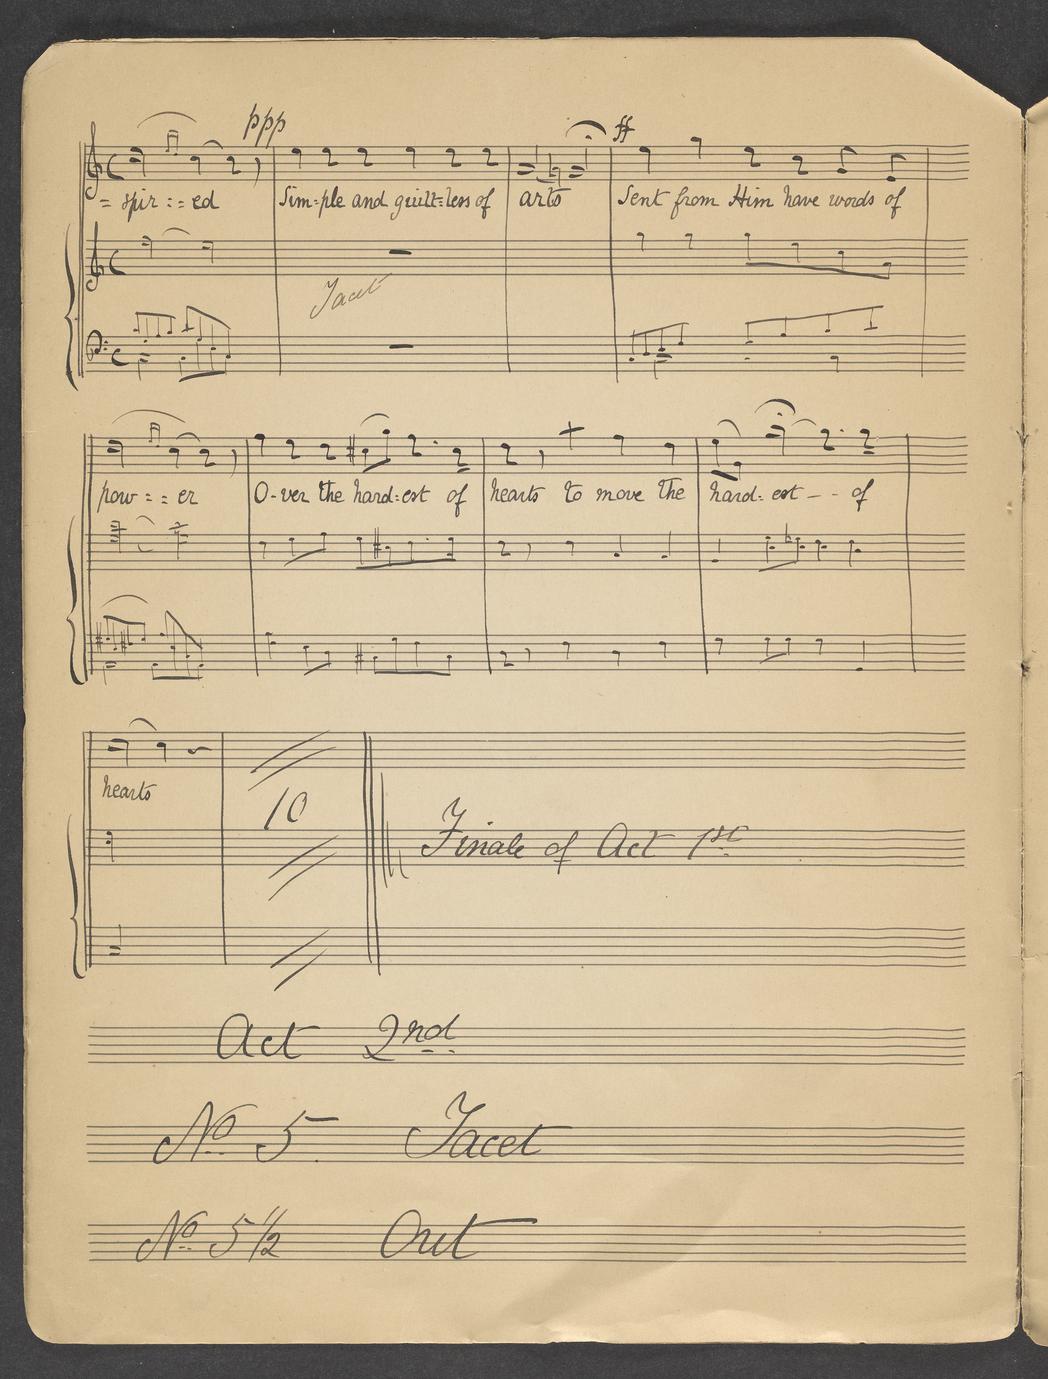 ppp ff
= spir : : = ed Sim=ple and guilt=less of arts Sent from Him have words of
Tacet
pow = : = er O-ver the hard=est of hearts to move the hard= est - - of
hearts
10
Finale of Act 1st
Act 2nd
No 5 Tacet
No 5 1/2 Out